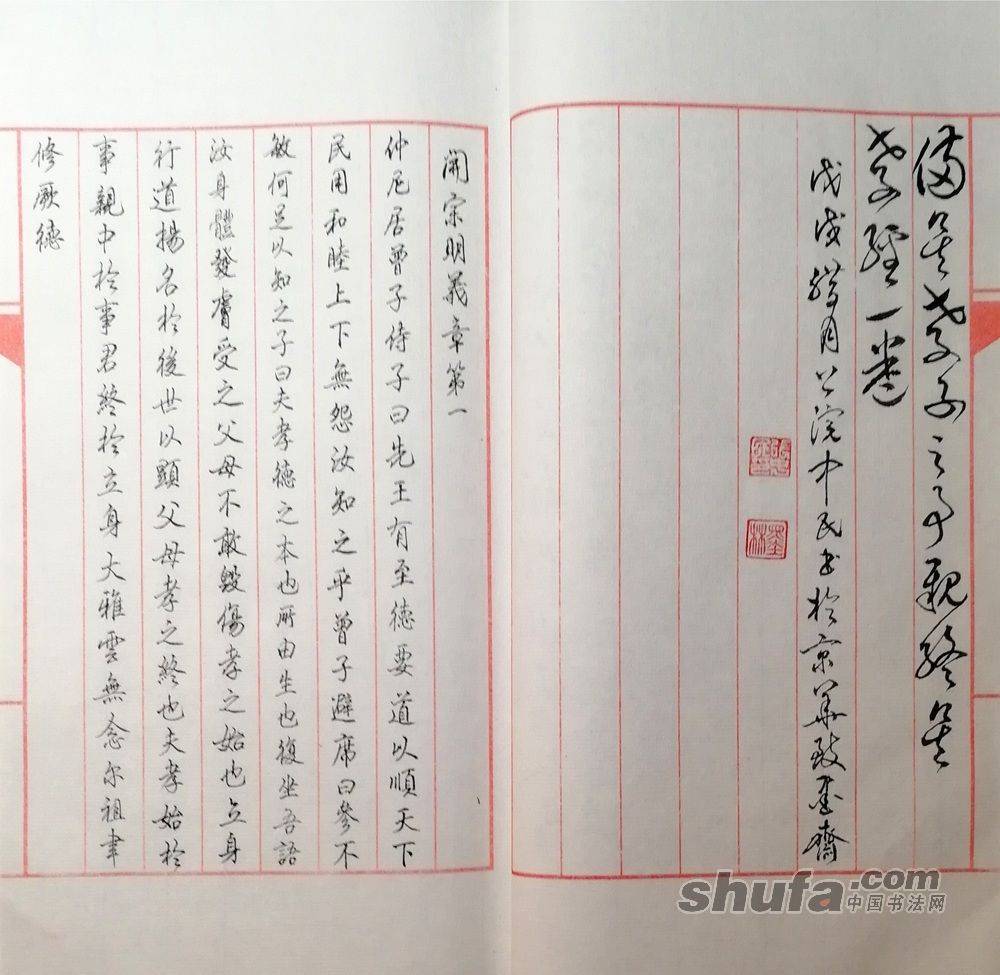 備矣孝子之事親終矣
孝經一卷
戊戌臘月浣中民書於京華致齋
開宗明義章第一
仲尼居曾子侍子曰先王有至德要道以順天下
民用和睦上下無怨汝知之乎曾子避席曰參不
敏何足以知之子曰夫孝德之本也所由生也復坐吾語
汝身體發膚受之父母不敢毀傷孝之始也立身
行道揚名於後世以顯父母孝之終也夫孝始於
事親中於事君終於立身大雅雲無念尔祖聿
修厥德
shufa.com
中国书法网